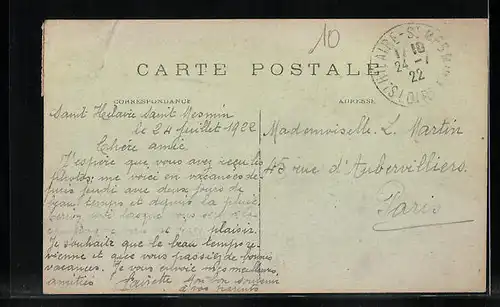 10
ST HILAIRE-ST MESMIN
10
24-7
22
LOIRET
CARTE POSTALE
CORRESPONDANCE
ADRESSE
Saint Hilaire Saint Mesmin
le 24 juillet 1922
Chère amie
J'espère que vous avez reçu les
photos; me voici en vacances de-
puis jeudi avec deux jours de
beau temps et depuis la pluie
plaisir.
Je souhaite que le beau temps re-
vienne et que vous passiez de bonnes
vacances. Je vous envoie mes meilleures
amitiés
Mon bon souvenir
à vos parents
Mademoiselle L. Martin
45 rue d'Aubervilliers
Paris